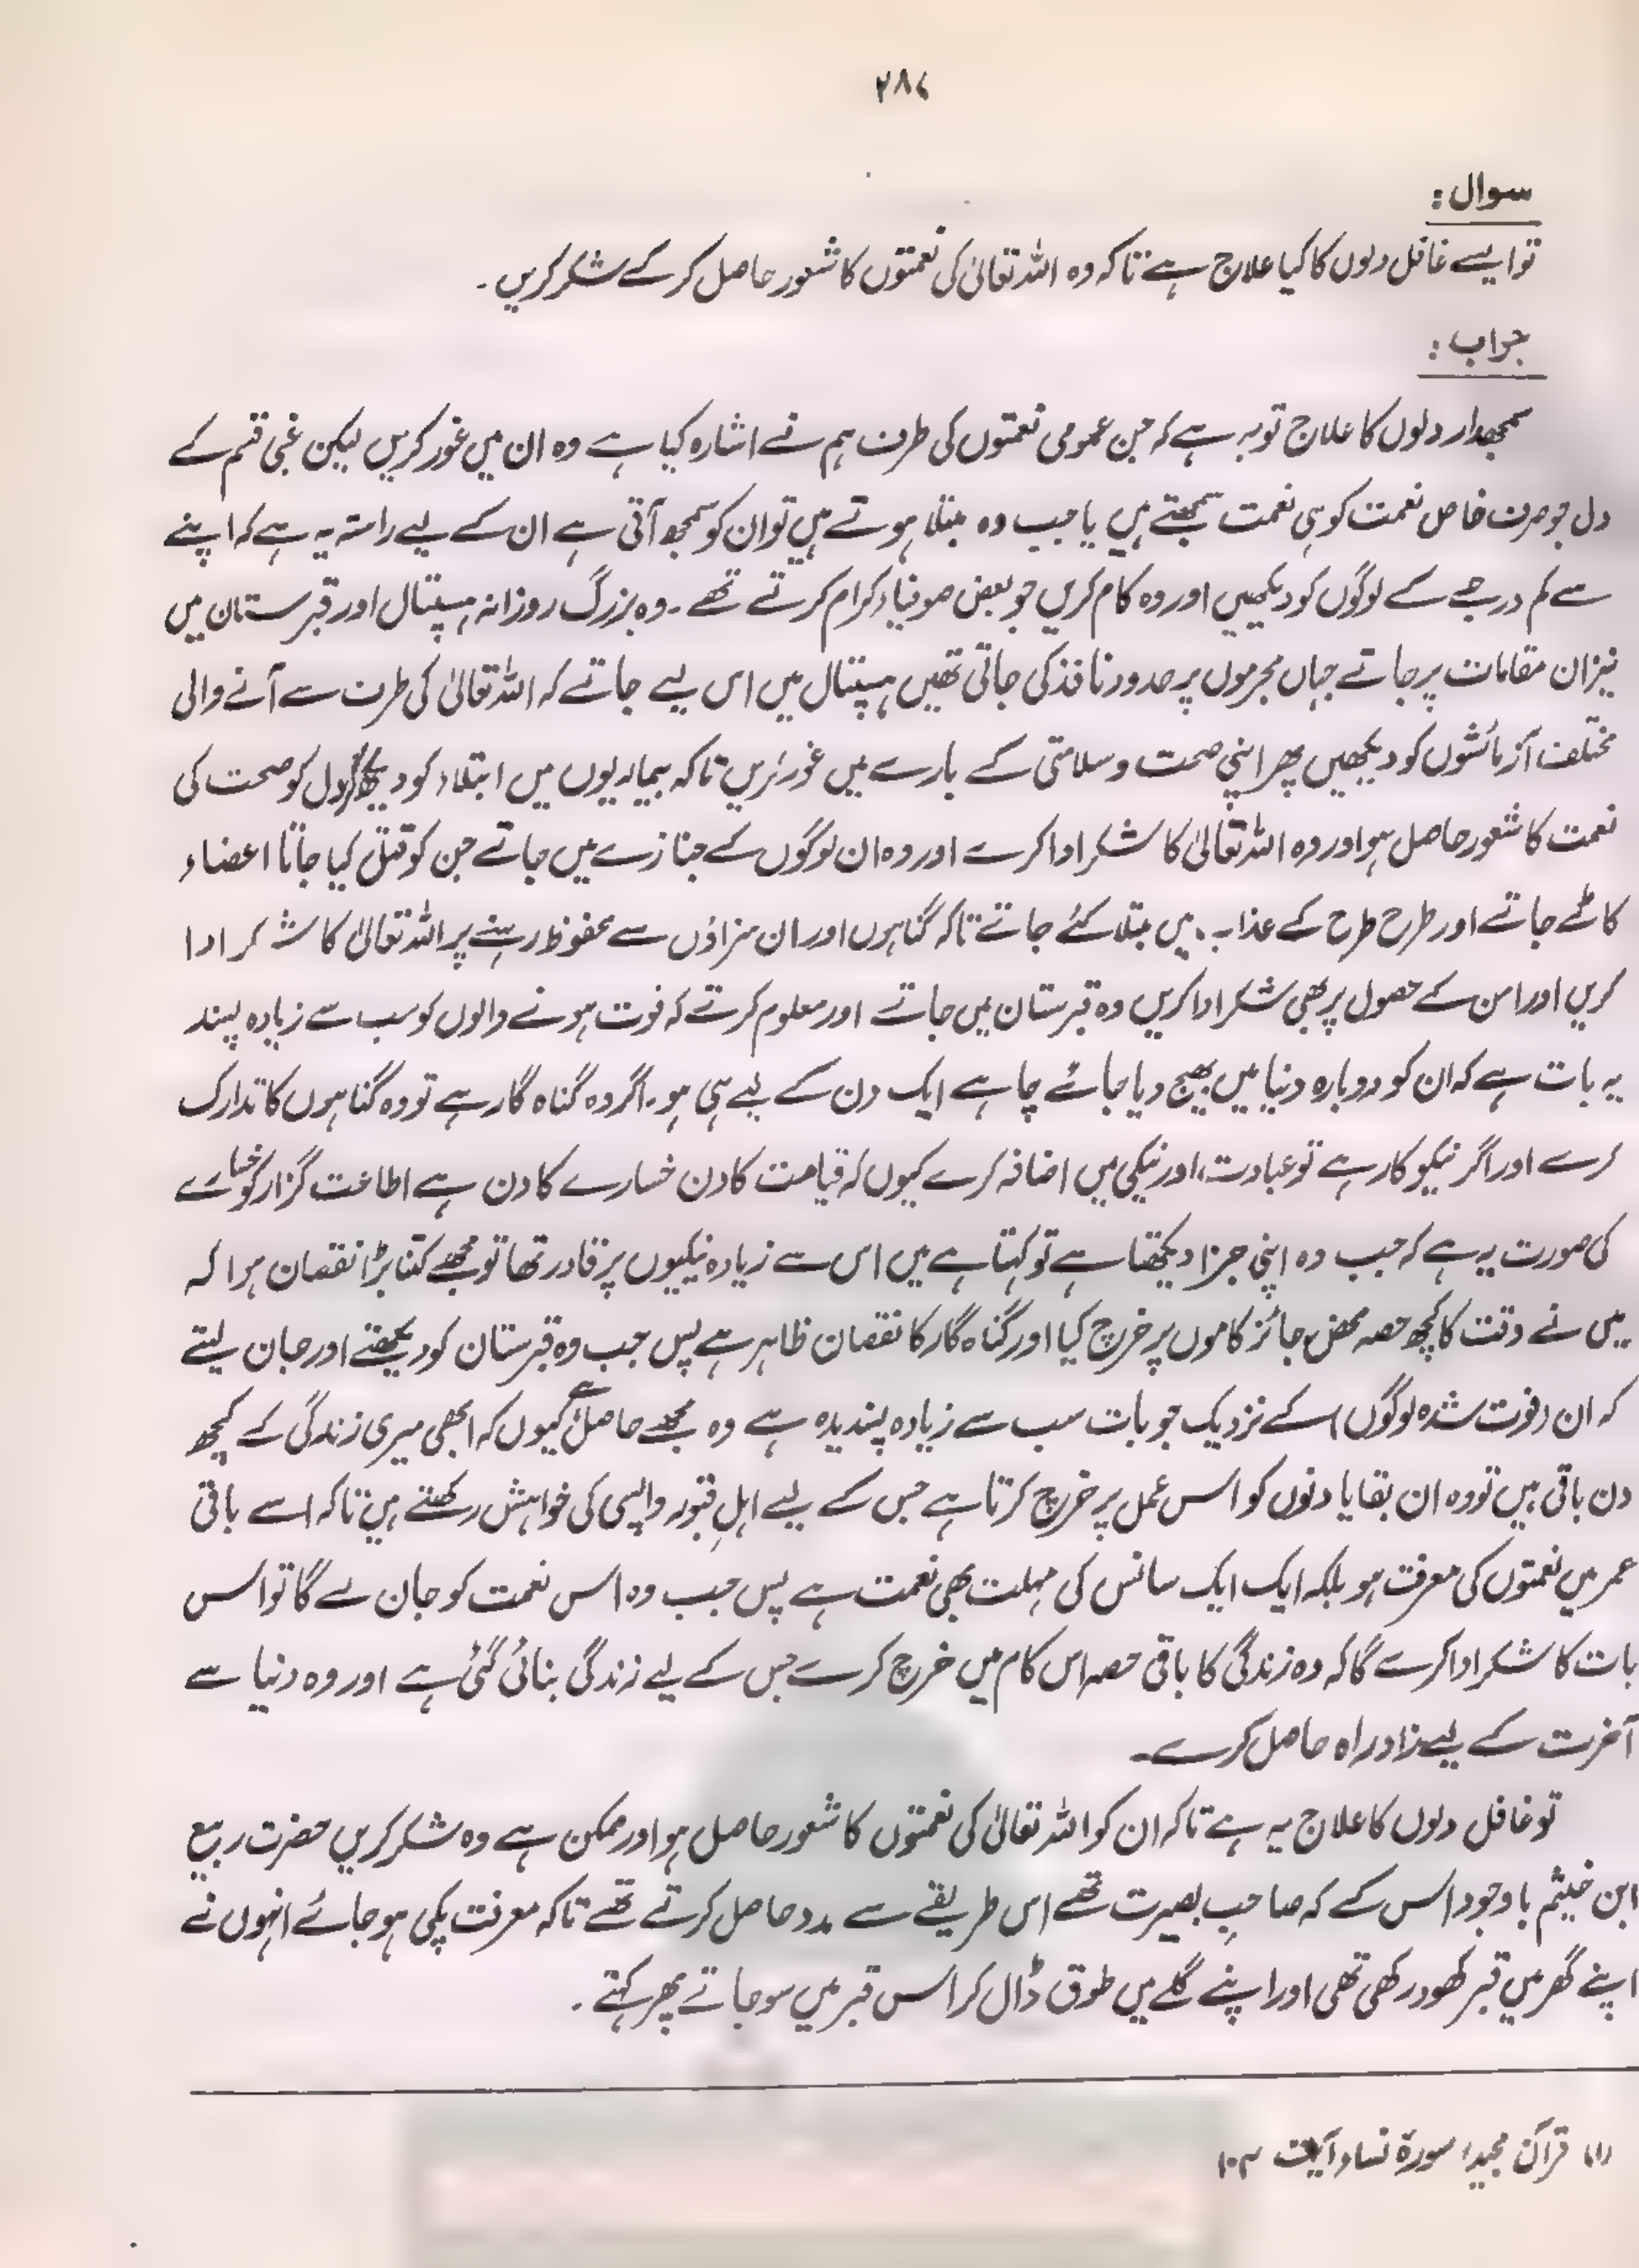 ۲۸۷
سوال:
تو ایسے غافل دلوں کا کیا علاج ہے تاکہ وہ اللہ تعالیٰ کی نعمتوں کا شعور حاصل کر کے شکر کریں۔
جواب:
سمجھدار دلوں کا علاج تو یہ ہے کہ جن عمومی نعمتوں کی طرف ہم نے اشارہ کیا ہے وہ ان میں غور کریں لیکن غبی قسم کے
دل جو صرف خاص نعمت کو ہی نعمت سمجھتے ہیں یا جب وہ مبتلا ہوتے ہیں تو ان کو سمجھ آتی ہے ان کے لیے راستہ یہ ہے کہ اپنے
سے کم درجے کے لوگوں کو دیکھیں اور وہ کام کریں جو بعض صوفیاء کرام کرتے تھے۔ وہ بزرگ روزانہ ہسپتال اور قبرستان میں
نیز ان مقامات پر جاتے جہاں مجرموں پر حدود نافذ کی جاتی تھیں ہسپتال میں اس لیے جاتے کہ اللہ تعالیٰ کی طرف سے آنے والی
مختلف آزمائشوں کو دیکھیں پھر اپنی صحت و سلامتی کے بارے میں غور کریں تاکہ بیماریوں میں ابتلاء کو دیکھ کر دل کو صحت کی
نعمت کا شعور حاصل ہو اور وہ اللہ تعالیٰ کا شکر ادا کرے اور وہ ان لوگوں کے جنازے میں جاتے جن کو قتل کیا جاتا اعضاء
کاٹے جاتے اور طرح طرح کے عذاب میں مبتلا کئے جاتے تاکہ گناہوں اور ان سزاؤں سے محفوظ رہنے پر اللہ تعالیٰ کا شکر ادا
کریں اور امن کے حصول پر بھی شکر ادا کریں وہ قبرستان میں جاتے اور معلوم کرتے کہ فوت ہونے والوں کو سب سے زیادہ پسند
یہ بات ہے کہ ان کو دوبارہ دنیا میں بھیج دیا جائے چاہے ایک دن کے لیے ہی ہو۔ اگر وہ گناہ گار ہے تو وہ گناہوں کا تدارک
کرے اور اگر نیکو کار ہے تو عبادت، اور نیکی میں اضافہ کرے کیوں کہ قیامت کا دن خسارے کا دن ہے اطاعت گزار کو خسارے
کی صورت یہ ہے کہ جب وہ اپنی جزا دیکھتا ہے تو کہتا ہے میں اس سے زیادہ نیکیوں پر قادر تھا تو مجھے کتنا بڑا نقصان ہوا کہ
میں نے وقت کا کچھ حصہ محض جائز کاموں پر خرچ کیا اور گناہ گار کا نقصان ظاہر ہے پس جب وہ قبرستان کو دیکھتے اور جان لیتے
کہ ان (فوت شدہ لوگوں) کے نزدیک جو بات سب سے زیادہ پسندیدہ ہے وہ مجھے حاصل ہے کیوں کہ ابھی میری زندگی کے کچھ
دن باقی ہیں تو وہ ان بقایا دنوں کو اس عمل پر خرچ کرتا ہے جس کے لیے اہلِ قبور واپسی کی خواہش رکھتے ہیں تاکہ اسے باقی
عمر میں نعمتوں کی معرفت ہو بلکہ ایک ایک سانس کی مہلت بھی نعمت ہے پس جب وہ اس نعمت کو جان لے گا تو اس
بات کا شکر ادا کرے گا کہ وہ زندگی کا باقی حصہ اس کام میں خرچ کرے جس کے لیے زندگی بنائی گئی ہے اور وہ دنیا سے
آخرت کے لیے زادِ راہ حاصل کرے۔
تو غافل دلوں کا علاج یہ ہے تاکہ ان کو اللہ تعالیٰ کی نعمتوں کا شعور حاصل ہو اور ممکن ہے وہ شکر کریں حضرت ربیع
ابن خیثم باوجود اس کے کہ صاحبِ بصیرت تھے اس طریقے سے مدد حاصل کرتے تھے تاکہ معرفت پکی ہو جائے انہوں نے
اپنے گھر میں قبر کھود رکھی تھی اور اپنے گلے میں طوق ڈال کر اس قبر میں سو جاتے پھر کہتے۔
(۱) قرآن مجید، سورۃ نساء آیت ۱۰۳